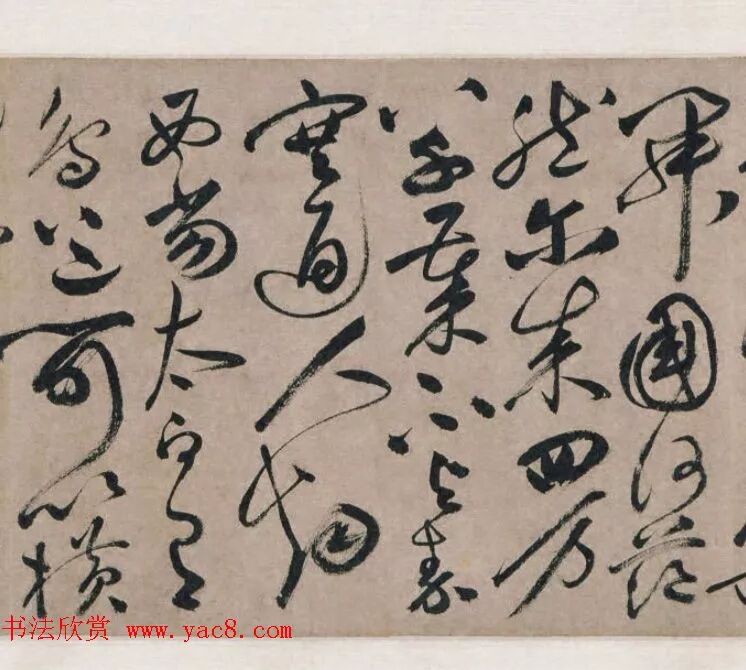 開國何茫
然尔来四万
八千歲不与秦
塞通人烟
西當太白有
鳥道可以横
书法欣赏 www.yac8.com